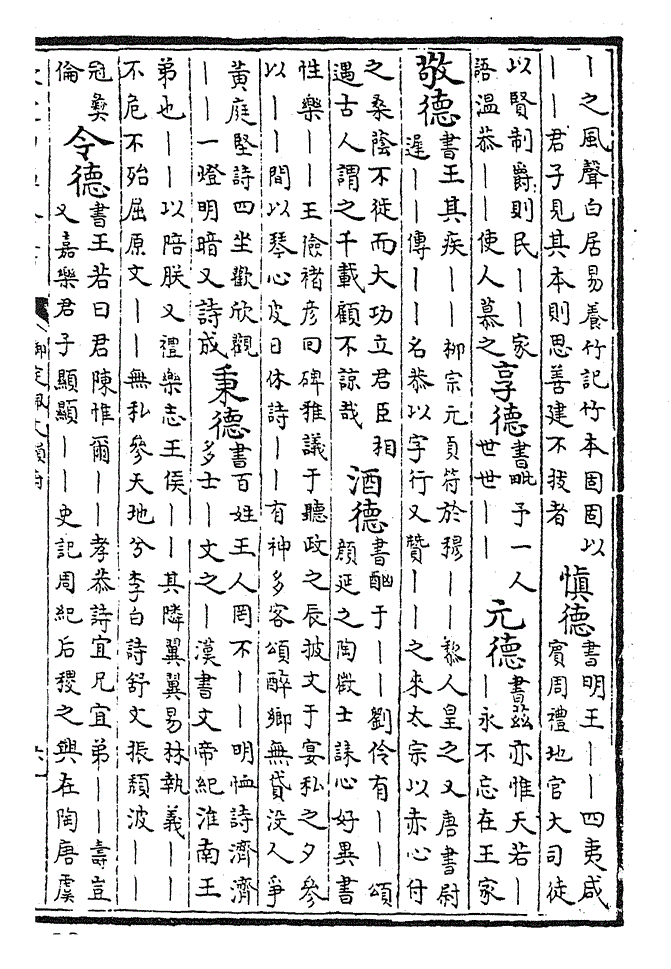 ｜之風聲白居易養竹記竹本固固以
｜｜君子見其本則思善建不拔者
慎德
書明王｜｜四夷咸
賓周禮地官大司徒
以賢制爵則民｜｜家
語溫恭｜｜使人慕之
享德
書毗予一人
世世｜｜
元德
書茲亦惟天若｜
｜永不忘在王家
敬德
書王其疾｜｜柳宗元貞符於穆｜｜黎人皇之又唐書尉
遲｜｜傳｜｜名恭以字行又贊｜｜之來太宗以赤心付
之桑蔭不徙而大功立君臣相
遇古人謂之千載顧不諒哉
酒德
書酗于｜｜劉伶有｜｜頌
顏延之陶徵士誄心好異書
性樂｜｜王儉褚彥回碑雅議于聽政之辰披文于宴私之夕參
以｜｜間以琴心皮日休詩｜｜有神多客頌醉鄉無貸沒人爭
黃庭堅詩四坐歡欣觀
｜｜一燈明暗又詩成
秉德
書百姓王人罔不｜｜明恤詩濟濟
多士｜文之｜漢書文帝紀淮南王
弟也｜｜以陪朕又禮樂志王侯｜｜其隣翼翼易林執義｜｜
不危不殆屈原文｜｜無私參天地兮李白詩舒文振頹波｜｜
冠彝
倫
令德
書王若曰君陳惟爾｜｜孝恭詩宜兄宜弟｜｜壽豈
又嘉樂君子顯顯｜｜史記周紀后稷之興在陶唐虞